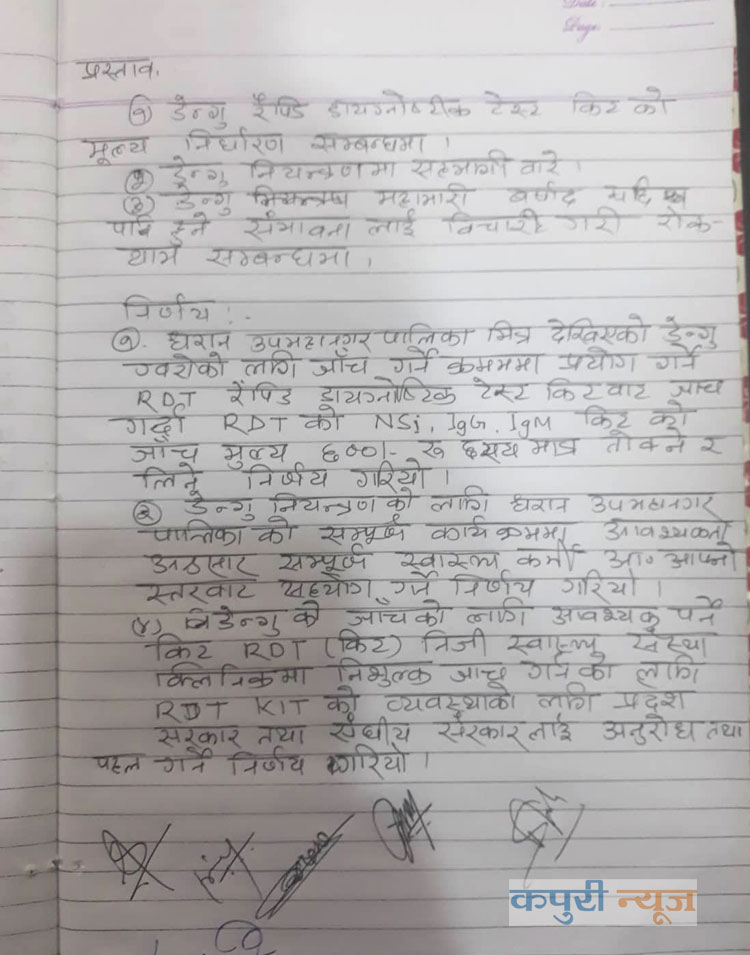 Date:
Page:
प्रस्ताव.
(१) डेन्गु रैपिड डायग्नोष्टीक टेस्ट किट को
मूल्य निर्धारण सम्बन्धमा ।
(२) डेन्गु नियन्त्रणमा सहभागी वारे ।
(३) डेन्गु महामारी यदि
हुने संभावना लाई विचारी गरी रोक-
थाम सम्बन्धमा ।
निर्णय :-
१. धरान उपमहानगर पालिका भित्र देखिएको डेन्गु
ज्वरोको लागि जाँच गर्ने क्रममा प्रयोग गर्ने
RDT रैपिड डायग्नोष्टिक टेस्ट किटवाट जाच
गर्दा RDT को NSi, IgG, IgM किट को
जाँच मुल्य ६००/- रु छसय मात्र तोक्ने र
लिने निर्णय गरियो ।
(२) डेन्गु नियन्त्रण को लागि धरान उपमहानगर
पालिका को सम्पूर्ण कार्यक्रममा आवश्यकता
अनुसार सम्पूर्ण स्वास्थ्य कर्मी आ॰ आफ्नो
स्तरवाट सहयोग गर्ने निर्णय गरियो ।
(४) डेन्गु को जाँच को लागि आवश्यक पर्ने
किट RDT (किट) निजी स्वास्थ्य संस्था
क्लिनिकमा निशुल्क जाच गर्न को लागि
RDT KIT को व्यवस्थाको लागि प्रदेश
सरकार तथा संघीय सरकार लाई अनुरोध तथा
पहल गर्ने निर्णय गरियो ।
कपुरी न्यूज